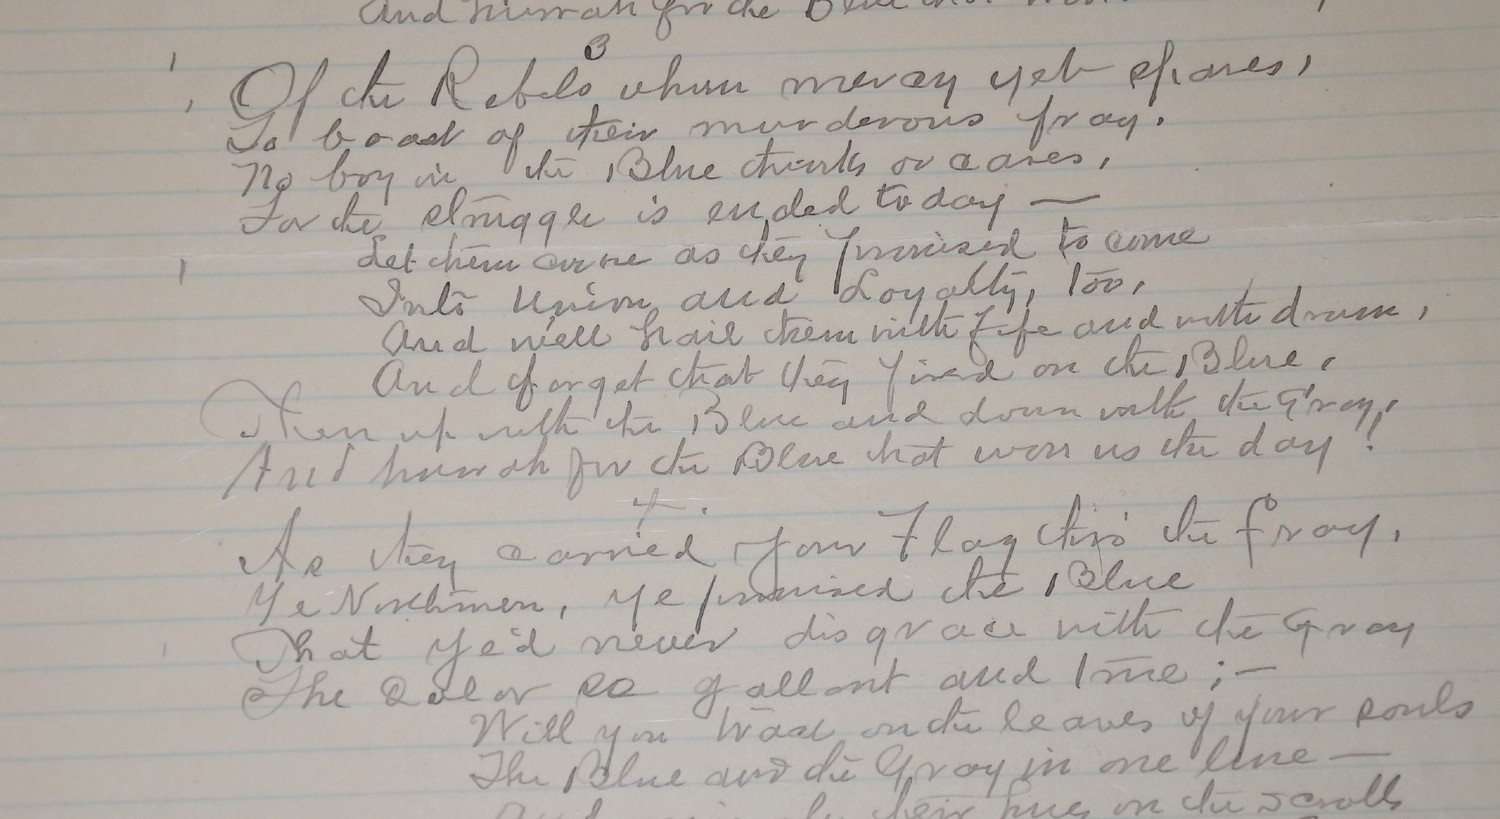 And hurrah for the Blue that won
3
Of the Rebels whom mercy yet spares,
To boast of their murderous fray.
No boy in the Blue thinks or cares,
For the struggle is ended today —
Let them come as they promised to come
Into Union and Loyalty, too,
And we'll hail them with fife and with drum,
And forget that they fired on the Blue.
Then up with the Blue and down with the Gray,
And hurrah for the Blue that won us the day!
4.
As they carried your Flag thro' the fray,
Ye Northmen, ye promised the Blue
That ye'd never disgrace with the Gray
The Color so gallant and true; —
Will you trace on the leaves of your souls
The Blue and the Gray in one line —
And their hues on the scrolls